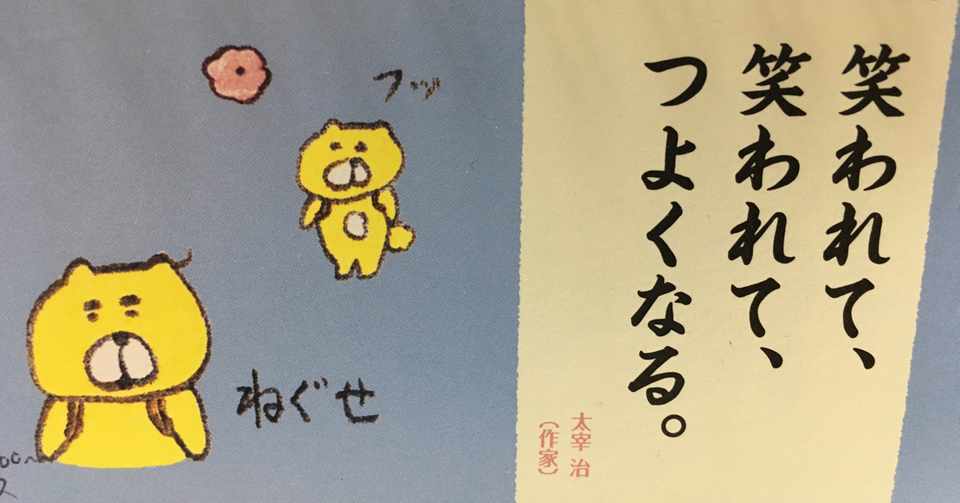 笑われて、
笑われて、
つよくなる。
太宰 治
（作家）
フッ
ねぐせ